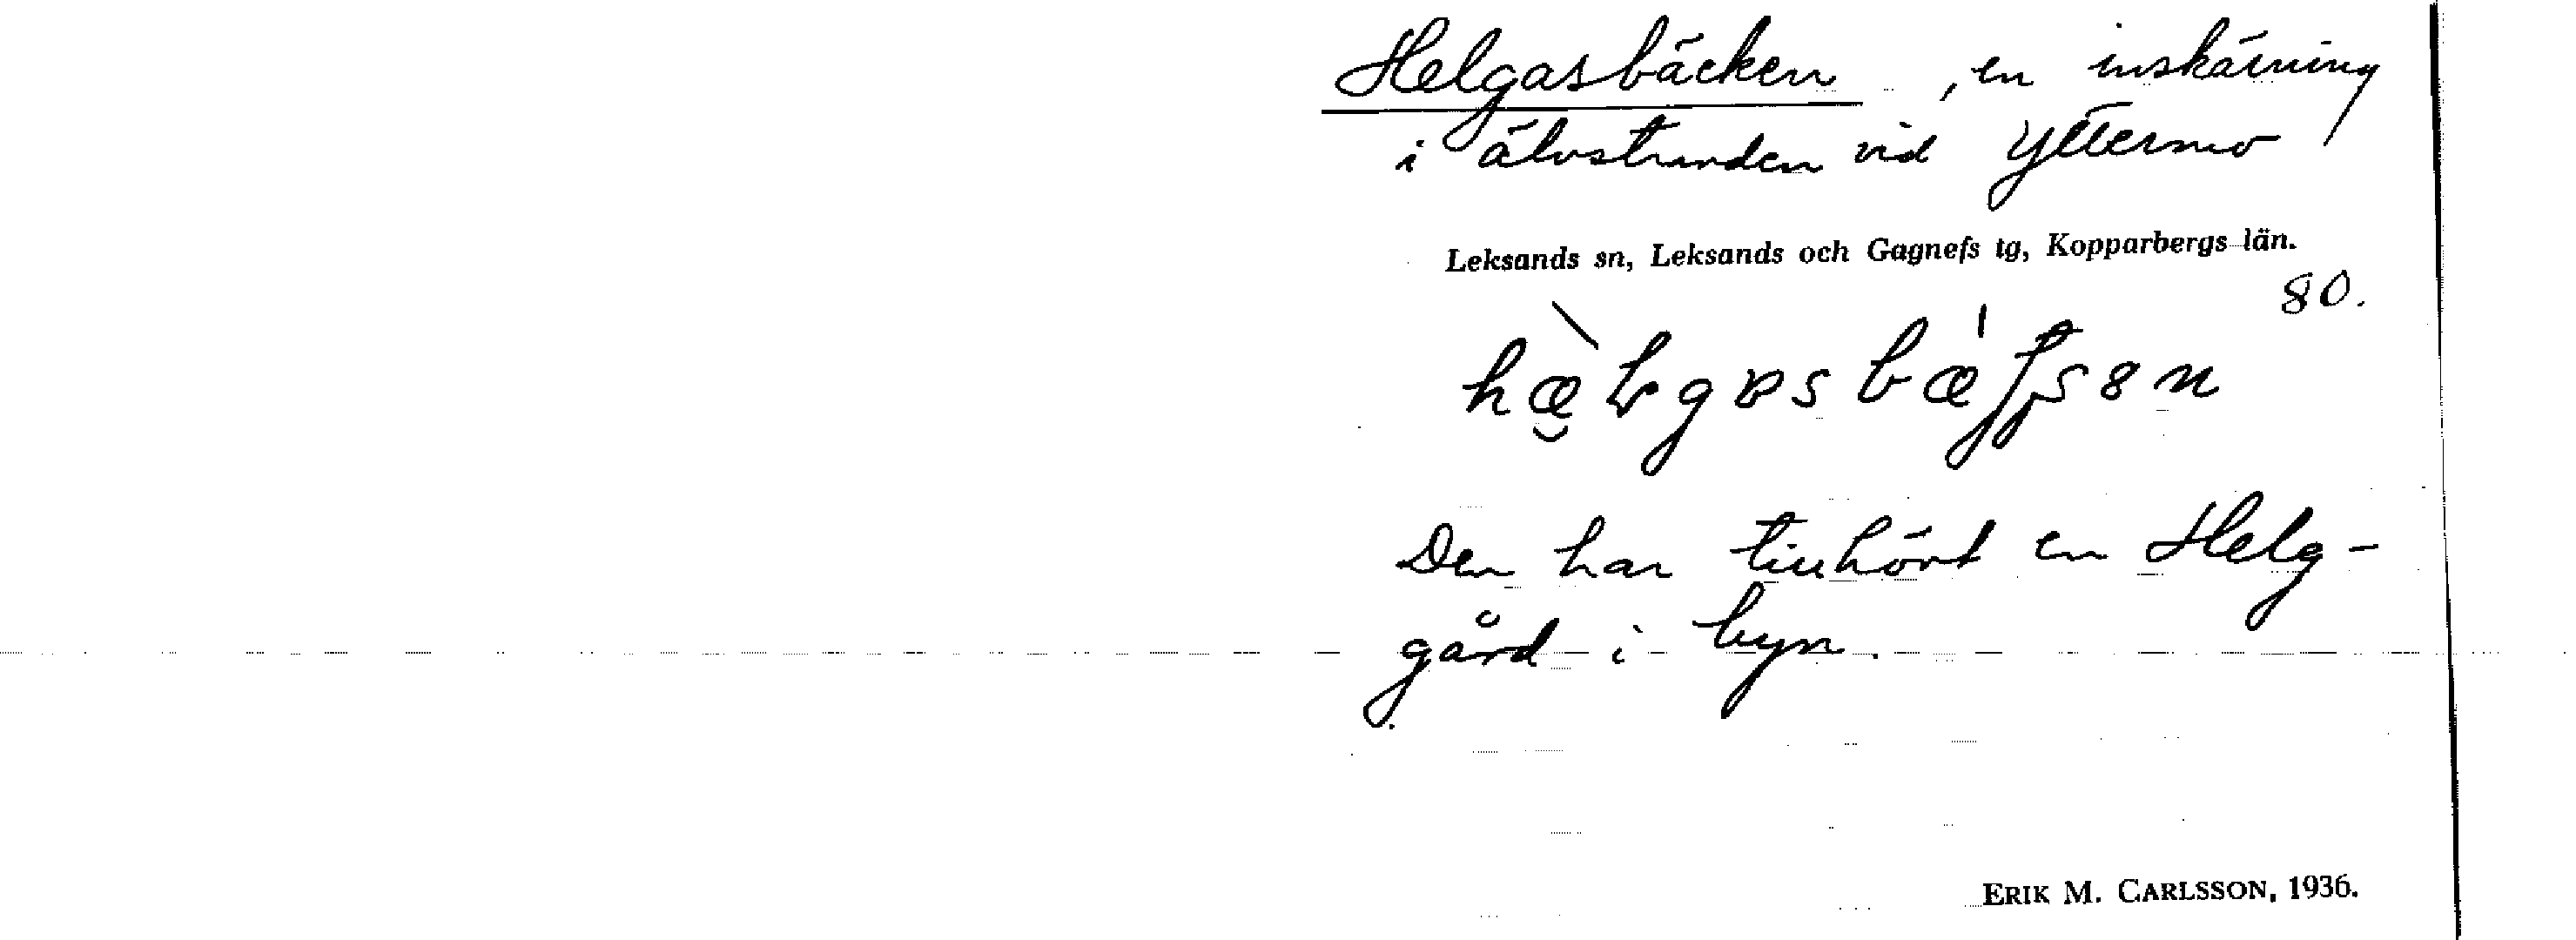 Helgasbäcken, en inskärning
i älvstranden vid Yttermo
Leksands sn, Leksands och Gagnefs tg, Kopparbergs län.
80.
Den har tillhört en Helg-
gård i byn.
ERIK M. CARLSSON, 1936.